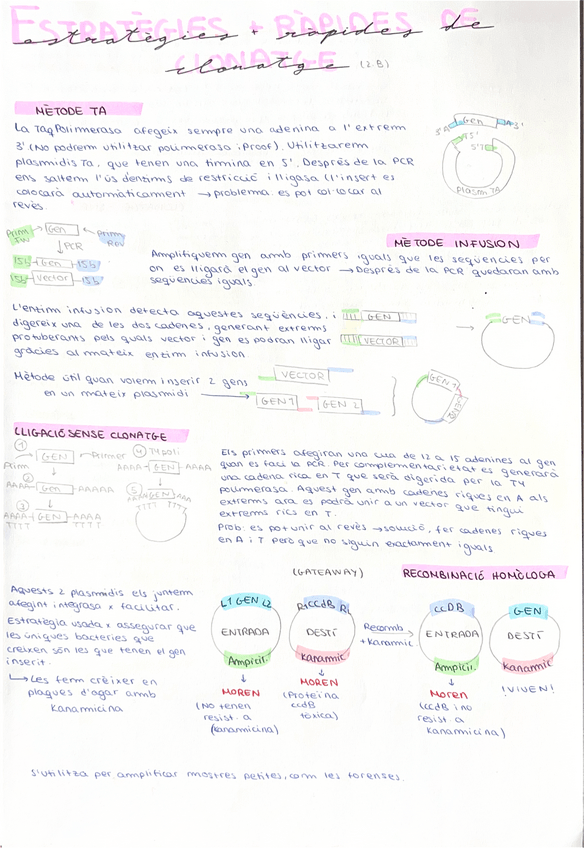 ESTRATÈGIES + RÀPIDES DE
CLONATGE
estratègies + ràpides de
clonatge (2.B)
MÈTODE TA
La Taq Polimerasa afegeix sempre una adenina a l'extrem
3' (No podrem utilitzar polimerasa iProof). Utilitzarem
plasmidis Ta, que tenen una timina en 5'. Després de la PCR
ens saltem l'ús d'entims de restricció i lligasa (l'insert es
colocarà automàticament → problema: es pot col·locar al
revés.
3'A Gen A 3'
T 5'
5' T
Plasm. TA
MÈTODE INFUSION
Prim FW → Gen ← Prim Rev
↓ PCR
15b Gen 15b
15b Vector 15b
Amplifiquem gen amb primers iguals que les seqüències per
on es lligarà el gen al vector → Després de la PCR quedaran amb
seqüències iguals.
L'entim infusion detecta aquestes seqüències, i
digereix una de les dos cadenes, generant extrems
protuberants pels quals vector i gen es podran lligar
gràcies al mateix entim infusion.
GEN
VECTOR
→
GEN
Mètode útil quan volem inserir 2 gens
en un mateix plasmidi →
VECTOR
GEN 1 GEN 2
GEN 1
GEN 2
LLIGACIÓ SENSE CLONATGE
① GEN Primer
Prim
② AAAA Gen AAAAA
③ AAAA GEN AAAA
TTTT TTTT
④ T4 poli
AAAA GEN AAAA
⑤ AAA GEN AAA
TTTT TTTT
Els primers afegiran una cua de 12 a 15 adenines al gen
quan es faci la PCR. Per complementarietat es generarà
una cadena rica en T que serà digerida per la T4
polimerasa. Aquest gen amb cadenes riques en A als
extrems ara es podrà unir a un vector que tingui
extrems rics en T.
Prob: es pot unir al revés → solució, fer cadenes riques
en A i T però que no siguin exactament iguals
(GATEAWAY)
RECOMBINACIÓ HOMÒLOGA
Aquests 2 plasmidis els juntem
afegint integrasa x facilitar.
Estratègia usada x assegurar que
les úniques bacteries que
creixen són les que tenen el gen
inserit.
↳ Les fem créixer en
plaques d'agar amb
Kanamicina
L1 GEN L2
ENTRADA
Ampicil.
↓
MOREN
(No tenen
resist. a
kanamicina)
R1 CCdB R2
DESTÍ
Kanamic
↓
MOREN
(Proteïna
ccdB
tòxica)
Recomb →
+ Kanamic
ccDB
ENTRADA
Ampicil.
↓
Moren
(ccdB i no
resist. a
Kanamicina)
GEN
DESTÍ
Kanamic
¡VIVEN!
S'utilitza per amplificar mostres petites, com les forenses.